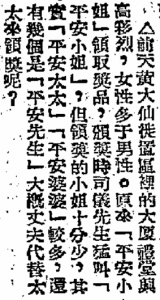 △前天黃大仙徙置區裡的大厦禮堂與
高彩烈，女性多于男性。原來「平安小
姐」領取獎品，頒獎時司儀先生猛叫「
平安小姐」，但領獎的小姐十分少，其
實「平安太太」「平安婆婆」較多，還
有幾個是「平安先生」大概丈夫代替太
太來領獎呢？